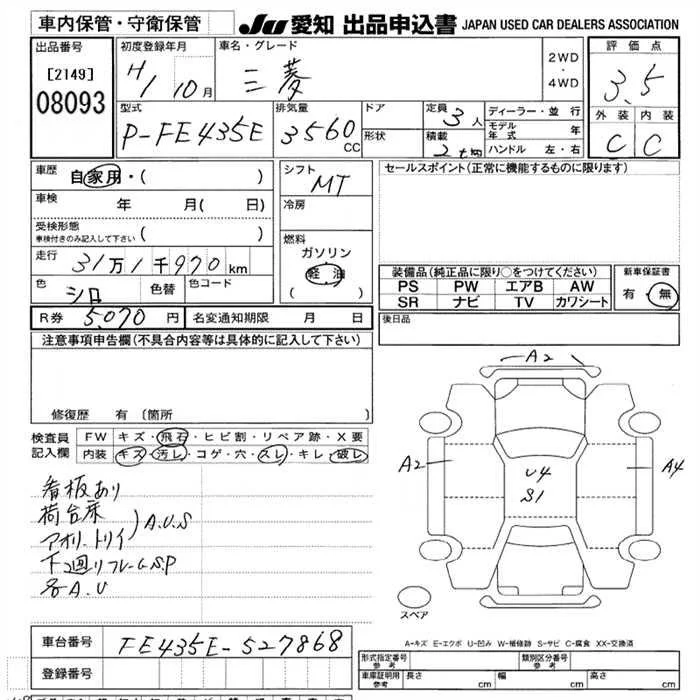 車内保管・守衛保管
JU 愛知 出品申込書 JAPAN USED CAR DEALERS ASSOCIATION
出品番号
[2149]
08093
初度登録年月
H1 10月
車名・グレード
三菱
2WD
・
4WD
評価点
3.5
外装 内装
C C
型式
P-FE435E
排気量
3560cc
ドア
形状
定員 3人
積載 2t kg
ディーラー・並 行
モデル年式 年
ハンドル 左・右
車歴
自家用・( )
車検 年 月( 日)
受検形態
車検付きのみ記入して下さい ( )
走行 31万1千970km
色 シロ 色替 色コード
シフト
MT
冷房
燃料
ガソリン
軽油
( )
セールスポイント(正常に機能するものに限ります)
装備品(純正品に限り○をつけてください)
PS PW エアB AW
SR ナビ TV カワシート
新車保証書
有・無
R券 5,070円 名変通知期限 月 日
後日品
注意事項申告欄(不具合内容等は具体的に記入して下さい)
修復歴 有(箇所 )
検査員記入欄
FW キズ・飛石・ヒビ割・リペア跡・X要
内装 キズ・汚レ・コゲ・穴・スレ・キレ・破レ
看板あり
荷台床
アオリ.トリイ
A.U.S
下回りフレームS.P
各A.U
A2
A2
A4
U4
S1
スペア
A-キズ E-エクボ U-凹み W-補修跡 S-サビ C-腐食 XX-交換済
車台番号 FE435E-527868
登録番号
形式指定番号
参考
類別区分番号
参考
車庫証明用
参考
長さ cm 幅 cm 高さ cm